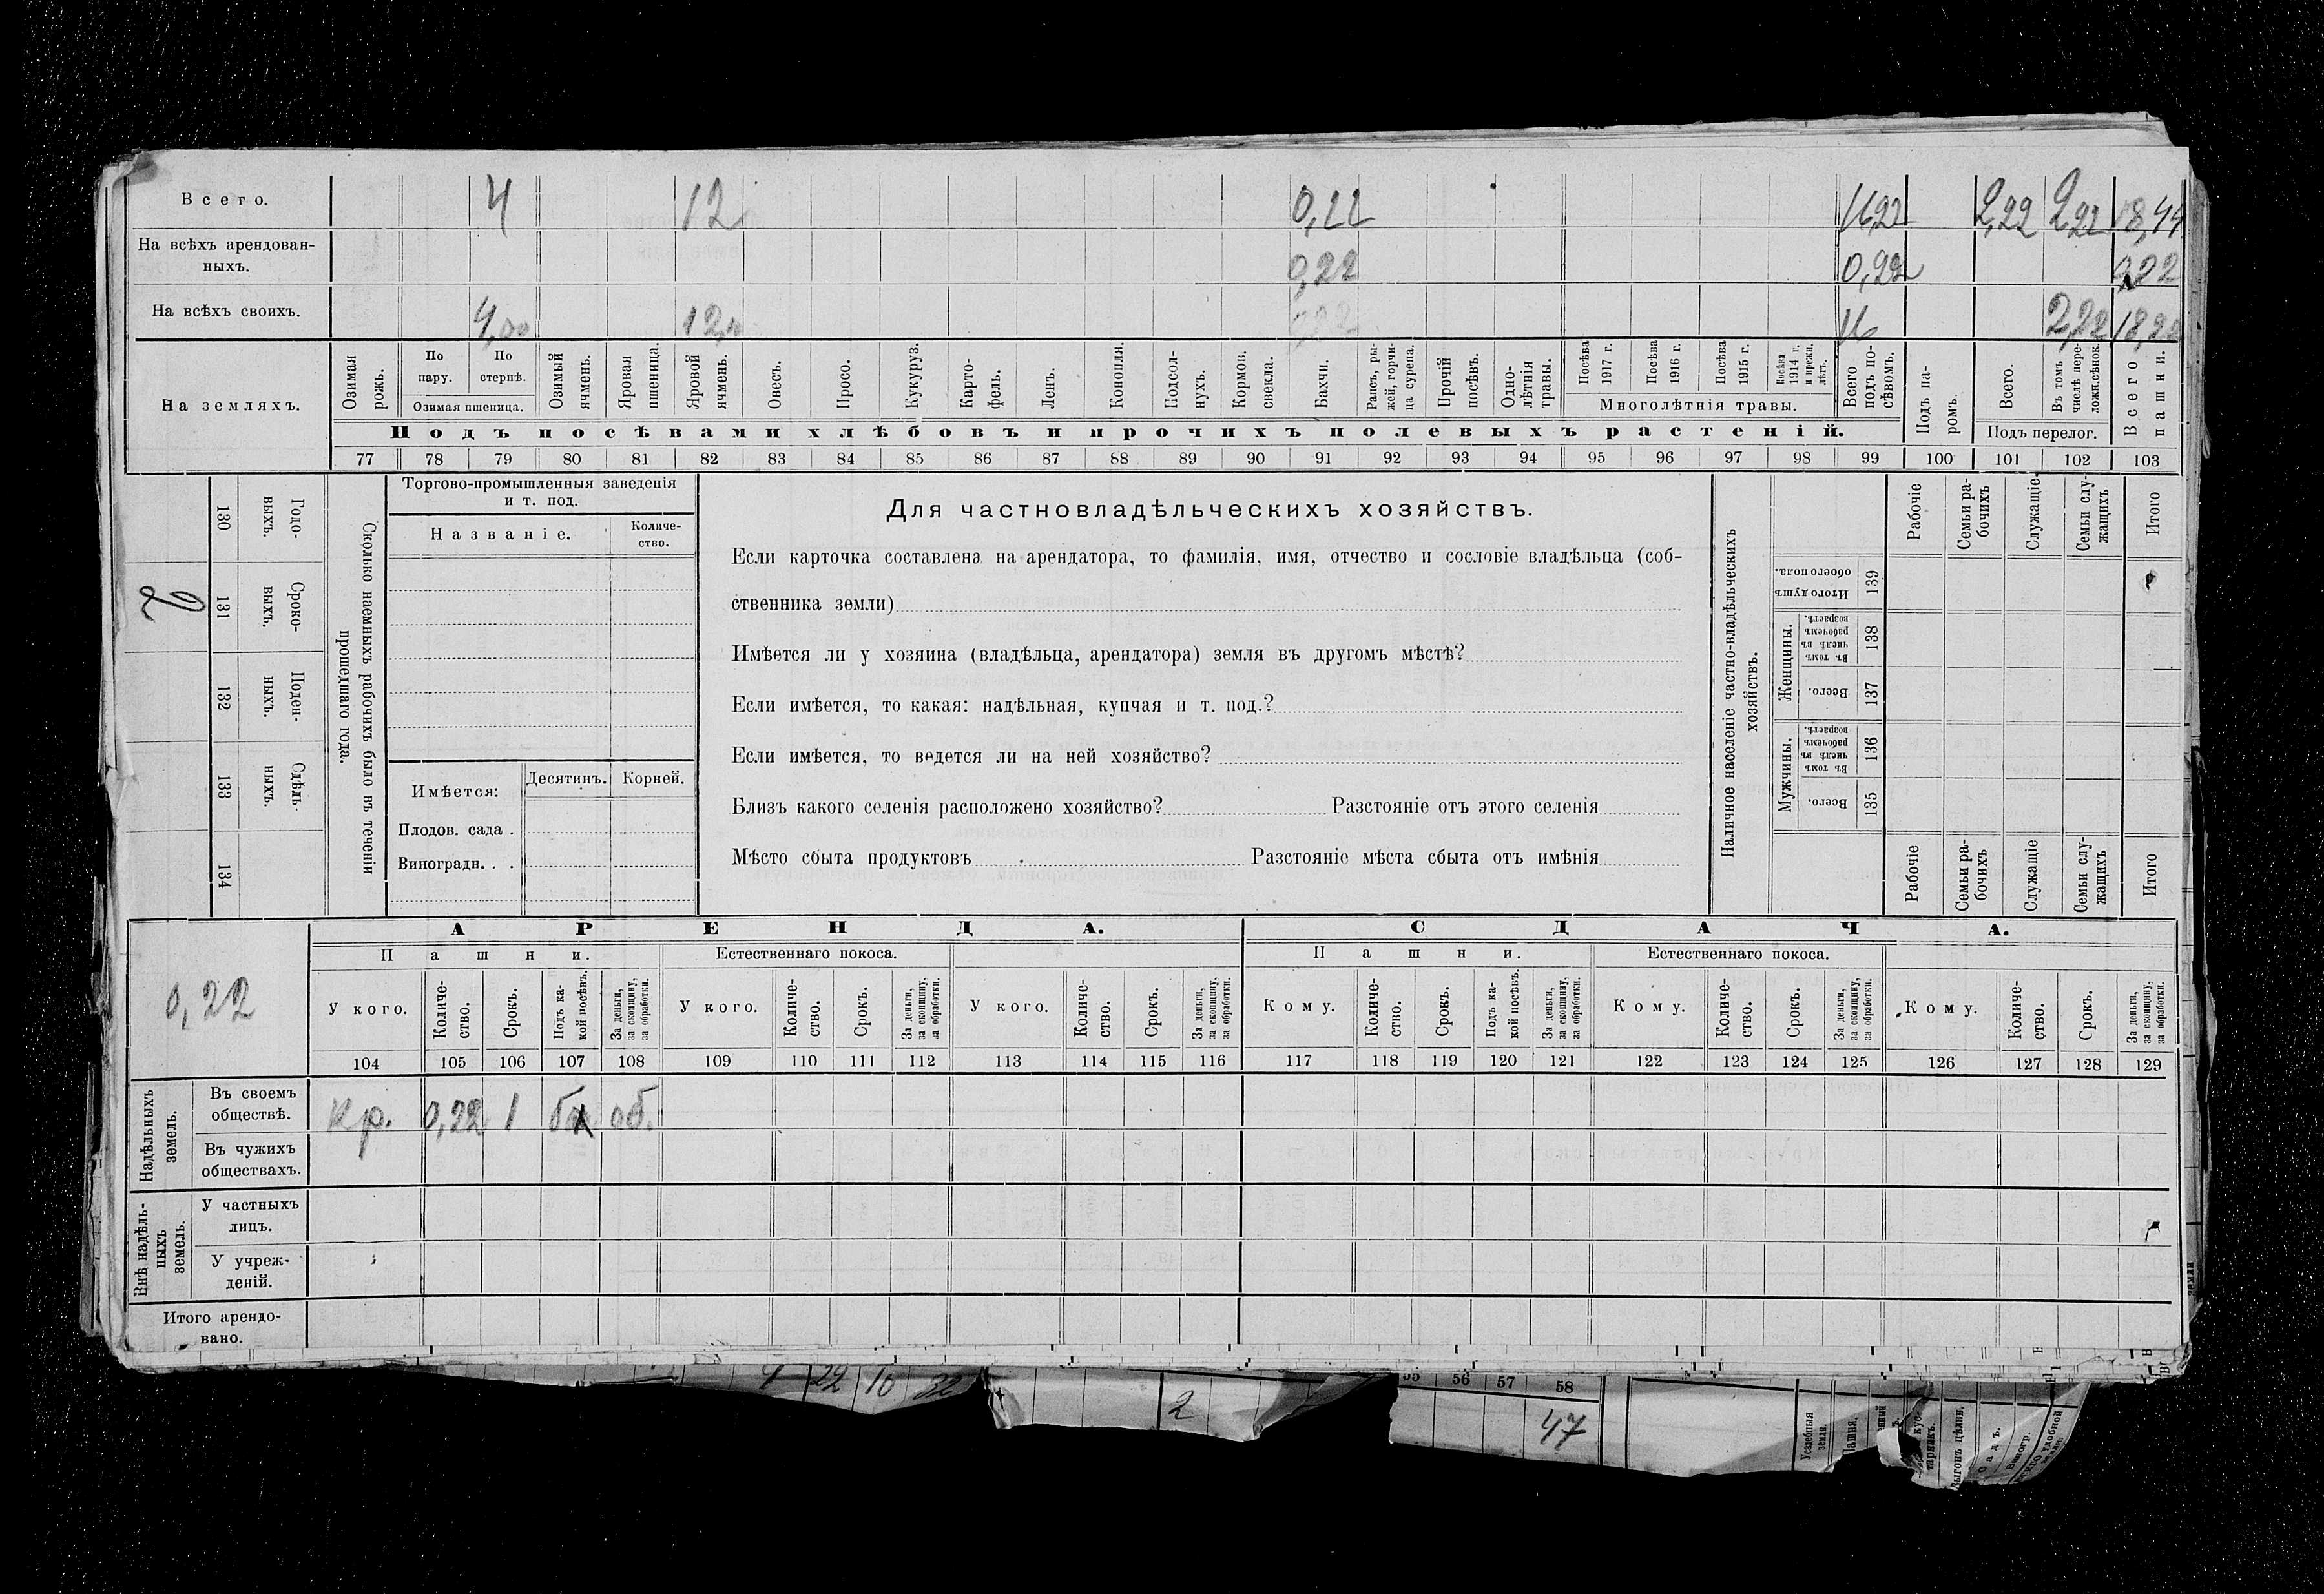 Всего. 4 12 0,22 16,22 2,22 2,22 18,44
На всѣхъ арендован-
ныхъ. 0,22 0,22 0,22
На всѣхъ своихъ. 4,00 12,00 16 2,22
На земляхъ.
Озимая рожь.
По пару.
По стернѣ.
Озимая пшеница.
Озимый ячмень.
Яровая пшеница.
Яровой ячмень.
Овесъ.
Просо.
Кукуруз.
Карто-
фель.
Ленъ.
Конопля.
Подсол-
нухъ.
Кормов. свекла.
Бахчи.
Рапсъ, ры-
жей, горчи-
ца сурепа.
Прочій посѣвъ.
Одно-
лѣтнія травы.
Посѣва 1917 г.
Посѣва 1916 г.
Посѣва 1915 г.
Посѣва 1914 г. и прежн. лѣтъ.
Многолѣтнія травы.
Всего подъ по-
сѣвомъ.
Подъ па-
ромъ.
Всего.
Въ томъ числѣ пере-
ложн.сѣнок.
Подъ перелог.
Всего пашни.
Подъ посѣвами хлѣбовъ и прочихъ полевыхъ растеній.
77 78 79 80 81 82 83 84 85 86 87 88 89 90 91 92 93 94 95 96 97 98 99 100 101 102 103
Сколько наемныхъ рабочихъ было въ теченіи
прошедшаго года.
Годо-
выхъ. 130
Сроко-
выхъ. 131 2
Поден-
ныхъ. 132
Сдѣль-
ныхъ. 133
134
Торгово-промышленныя заведенія
и т. под.
Названіе.
Количе-
ство.
Имѣется: Десятинъ. Корней.
Плодов. сада .
Виноградн. . .
Для частновладѣльческихъ хозяйствъ.
Если карточка составлена на арендатора, то фамилія, имя, отчество и сословіе владѣльца (соб-
ственника земли)
Имѣется ли у хозяина (владѣльца, арендатора) земля въ другомъ мѣстѣ?
Если имѣется, то какая: надѣльная, купчая и т. под.?
Если имѣется, то ведется ли на ней хозяйство?
Близъ какого селенія расположено хозяйство? Разстояніе отъ этого селенія
Мѣсто сбыта продуктовъ Разстояніе мѣста сбыта отъ имѣнія
Наличное населеніе частно-владѣльческихъ
хозяйствъ.
Рабочіе
Семьи ра-
бочихъ
Служащіе
Семьи слу-
жащихъ
Итого
Итого душ обоего пола. 139
Женщины.
Въ томъ числѣ въ рабочемъ возрастѣ. 138
Всего. 137
Мужчины.
Въ томъ числѣ въ рабочемъ возрастѣ. 136
Всего. 135
Рабочіе
Семьи ра-
бочихъ
Служащіе
Семьи слу-
жащихъ
Итого
0,22
АРЕНДА. СДАЧА.
Пашни. Естественнаго покоса. Пашни. Естественнаго покоса.
У кого.
Количе-
ство.
Срокъ.
Подъ ка-
кой посѣвъ.
За деньги,
за скопщину,
за обработки.
У кого.
Количе-
ство.
Срокъ.
За деньги,
за скопщину,
за обработки.
У кого.
Количе-
ство.
Срокъ.
За деньги,
за скопщину,
за обработки.
Кому.
Количе-
ство.
Срокъ.
Подъ ка-
кой посѣвъ.
За деньги,
за скопщину,
за обработки.
Кому.
Количе-
ство.
Срокъ.
За деньги,
за скопщину,
за обработки.
Кому.
Количе-
ство.
Срокъ.
За деньги,
за скопщину,
за обработки.
104 105 106 107 108 109 110 111 112 113 114 115 116 117 118 119 120 121 122 123 124 125 126 127 128 129
Надѣльныхъ
земель.
Въ своемъ
обществѣ. Кр. 0,22 1 об.
Въ чужихъ
обществахъ.
Внѣ надѣль-
ныхъ
земель.
У частныхъ
лицъ.
У учреж-
деній.
Итого арендо-
вано.
4 22 10 32
2
56 57 58
47
Усадебныя
земли.
Пашня.
Выгонъ цѣлин.
Садъ.
Виногр.